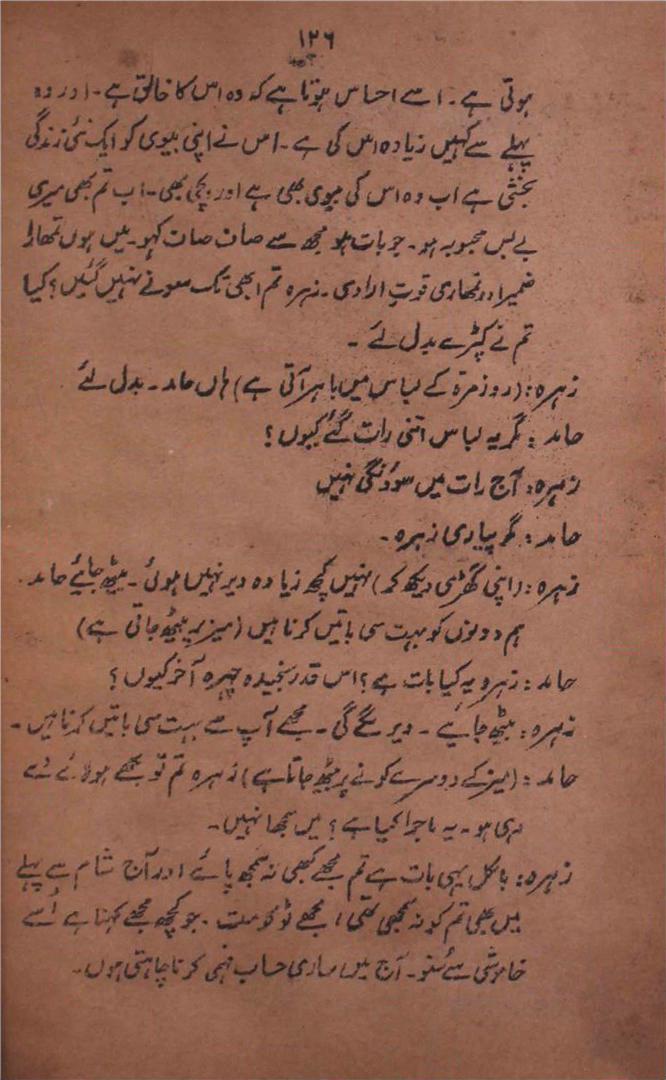 ۱۲۶
ہوتی ہے۔ اسے احساس ہوتا ہے کہ وہ اس کا خالق ہے۔ اور وہ
پہلے سے کہیں زیادہ اس کی ہے۔ اس نے اپنی بیوی کو ایک نئی زندگی
بخشی ہے اب وہ اس کی بیوی بھی ہے اور بچی بھی۔ اب تم بھی میری
بےبس محبوبہ ہو۔ جو بات ہو مجھ سے صاف صاف کہو۔ میں ہوں تمھارا
ضمیر اور تمھاری قوتِ ارادی۔ زہرہ تم ابھی تک سونے نہیں گئیں؟ کیا
تم نے کپڑے بدل لئے۔
زہرہ: (روزمرّہ کے لباس میں باہر آتی ہے) ہاں حامد۔ بدل لئے
حامد: مگر یہ لباس اتنی رات گئے کیوں؟
زہرہ: آج رات میں سوؤنگی نہیں
حامد: مگر پیاری زہرہ۔
زہرہ: (اپنی گھڑی دیکھ کر) نہیں کچھ زیادہ دیر نہیں ہوئی۔ بیٹھ جائیے حامد۔
ہم دونوں کو بہت سی باتیں کرنا ہیں (میز پہ بیٹھ جاتی ہے)
حامد: زہرہ یہ کیا بات ہے؟ اس قدر سنجیدہ چہرہ آخر کیوں؟
زہرہ: بیٹھ جائیے۔ دیر لگے گی۔ مجھے آپ سے بہت سی باتیں کرنا ہیں۔
حامد: (میز کے دوسرے کونے پر بیٹھ جاتا ہے) زہرہ تم تو مجھے ہولائے دے
رہی ہو۔ یہ ماجرا کیا ہے؟ میں سمجھا نہیں۔
زہرہ: بالکل یہی بات ہے تم مجھے کبھی نہ سمجھ پائے اور آج شام سے پہلے
میں بھی تم کو نہ سمجھی تھی، مجھے ٹوکو مت۔ جو کچھ مجھے کہنا ہے اُسے
خاموشی سے سُنو۔ آج میں ساری حساب فہمی کرنا چاہتی ہوں۔